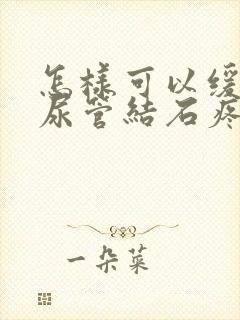 怎樣可以緩
尿管結石疼
一朵菜